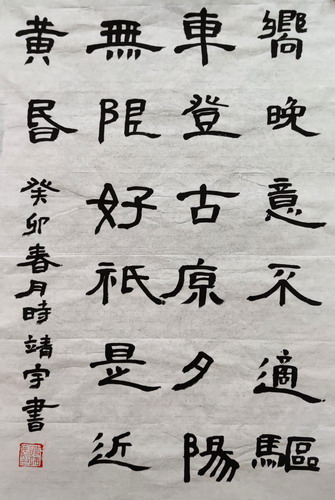 嚮晚意不適驅
車登古原夕陽
無限好祇是近
黄昏
癸卯春月時靖宇書